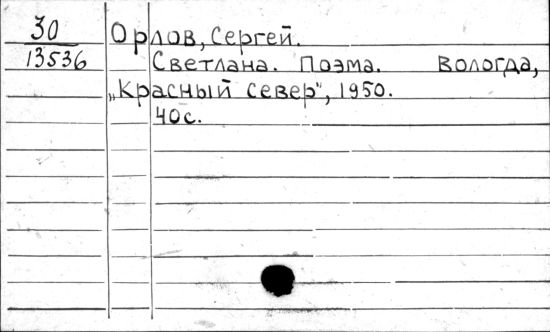 30
13536
Орлов, Сергей.
Светлана. Поэма. Вологда,
„Красный север", 1950.
40с.